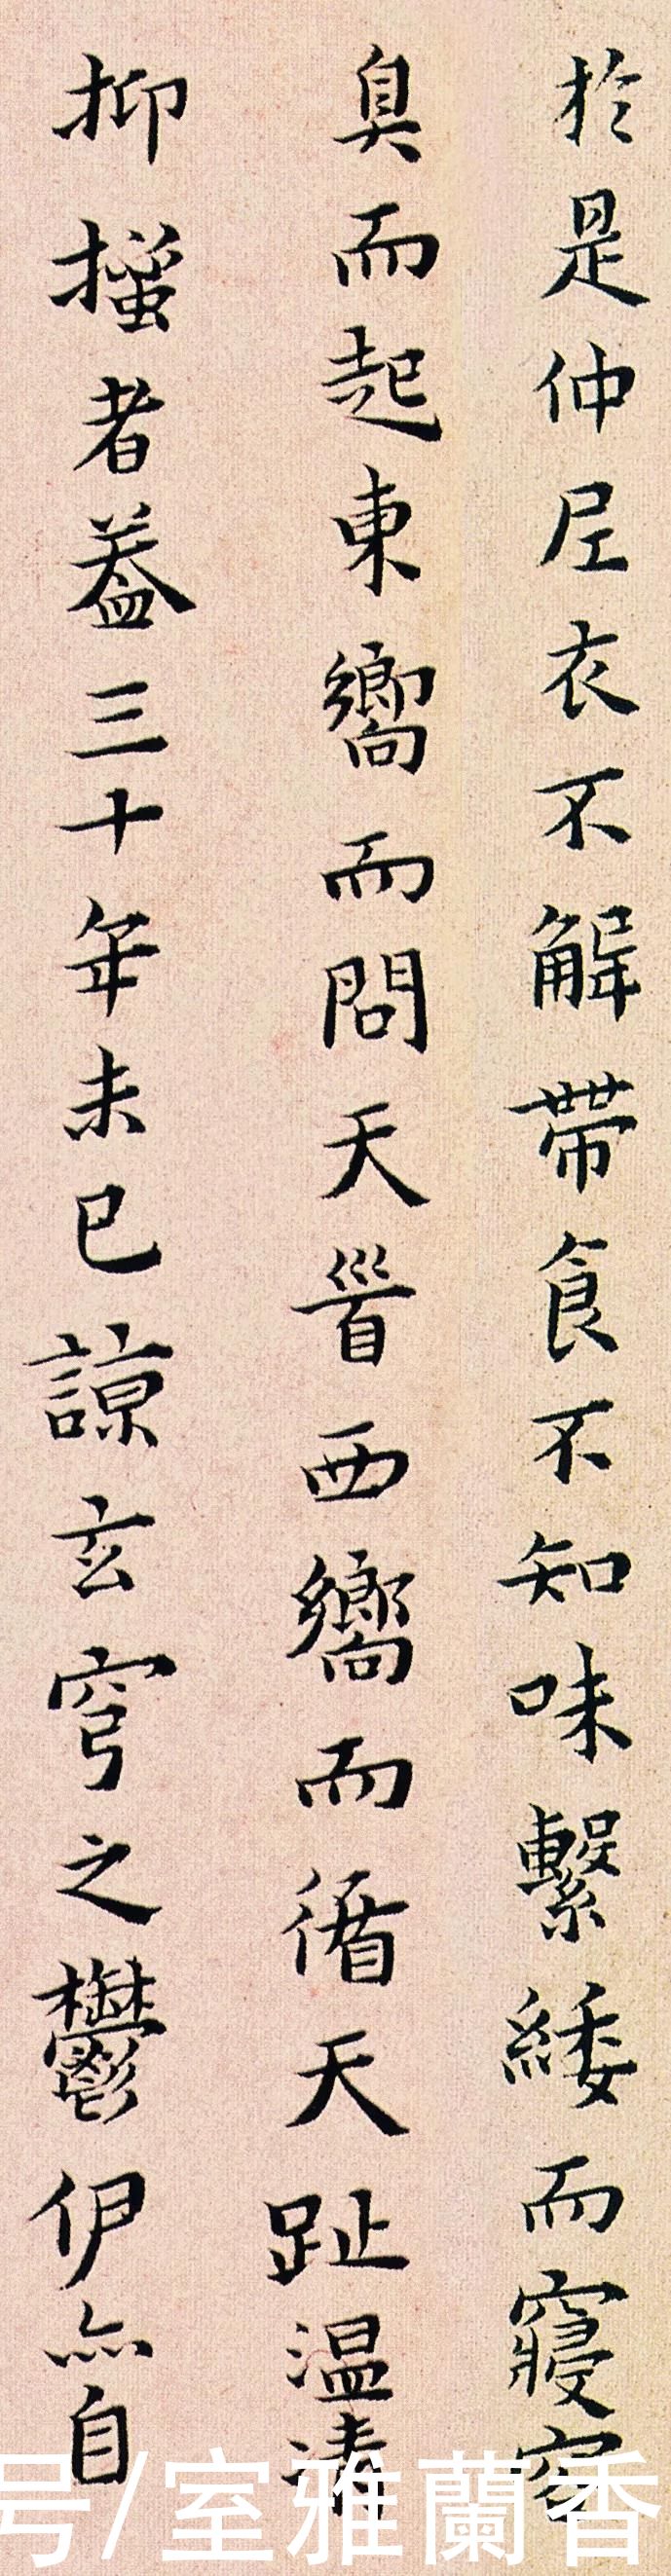 於是仲尼衣不解帶食不知味繫緌而寢
臭而起東嚮而問天首西嚮而循天趾温清
抑搔者葢三十年未已諒玄穹之鬱伊亦自
号/室雅蘭香